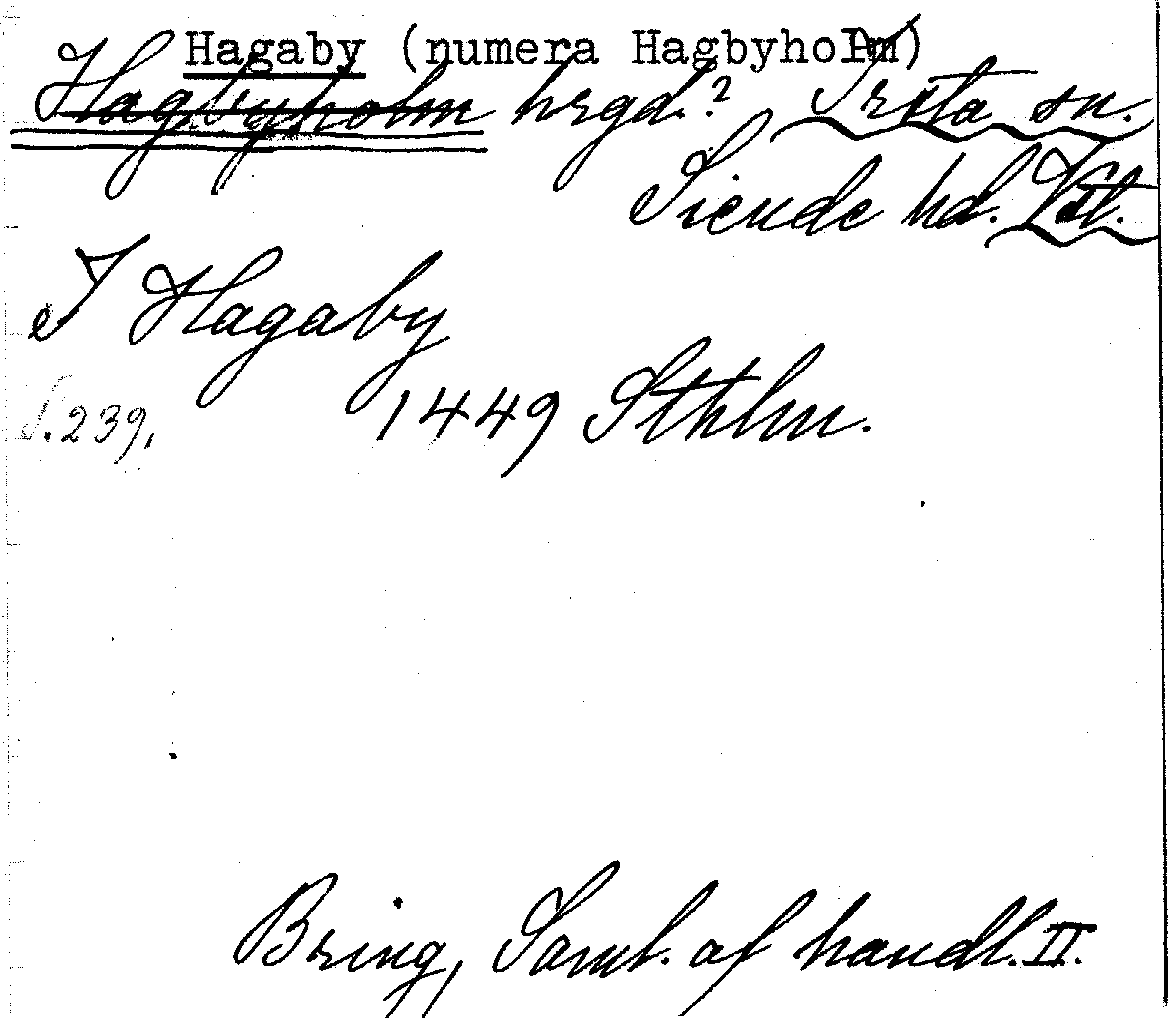 Hagaby (numera Hagbyholm)
Hagbyholm hrgd.? Irsta sn.
Siende hd. Vstm.
I Hagaby
S. 239. 1449 Sthlm.
Bring, Saml. af handl. II.